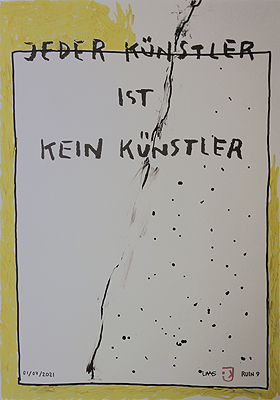 JEDER KÜNSTLER
IST
KEIN KÜNSTLER
01/09/2021
UMS
RUIN 9